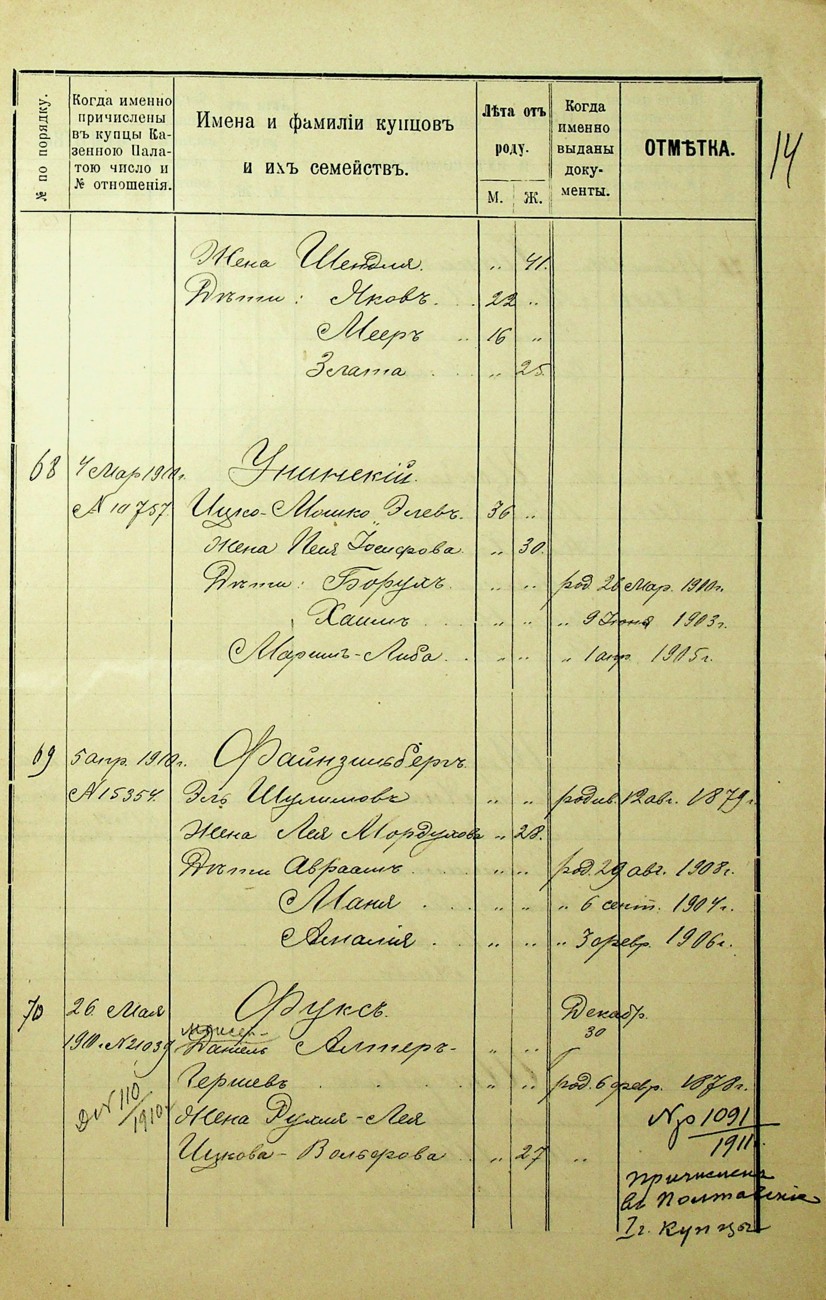 14
№ по порядку.
Когда именно
причислены
въ купцы Ка-
зенною Пала-
тою число и
№ отношенія.
Имена и фамиліи купцовъ
и ихъ семействъ.
Лѣта отъ
роду.
М. Ж.
Когда
именно
выданы
доку-
менты.
ОТМѢТКА.
Жена Шендля. „ 41.
Дѣти: Яковъ. 22 „
Мееръ 16 „
Злата „ 25.
68 4 Мар 1910 г. Унинскій.
№ 10757 Ицко-Мошко Элевъ. 36 „
Жена Песя Іосифова „ 30.
Дѣти: Борухъ. „ „ род. 26 Мар. 1910 г.
Хаимъ „ „ „ 9 Іюня 1903 г.
Маримъ-Либа „ „ „ 1 апр 1905 г.
69 5 апр. 1910 г. Файнзильбергъ.
№ 15354. Эль Шулимовъ „ „ родив. 12 авг. 1879 г.
Жена Лея Мордухова „ 28.
Дѣти Авраамъ „ „ род. 29 авг. 1908 г.
Маня „ „ „ 6 сент. 1904 г.
Амалія „ „ „ 3 февр. 1906 г.
70 26 Мая Фуксъ. Декабр.
30
1910 г. № 21039 Даніель Алтеръ- „ „
Гершевъ „ „ род. 6 февр. 1878 г.
Д № 110/1910 г. Жена Рухля-Лея № р 1091/1911 г.
Ицкова-Вольфова „ 27 „
причислена
въ Полтавскіе
I г. купцы